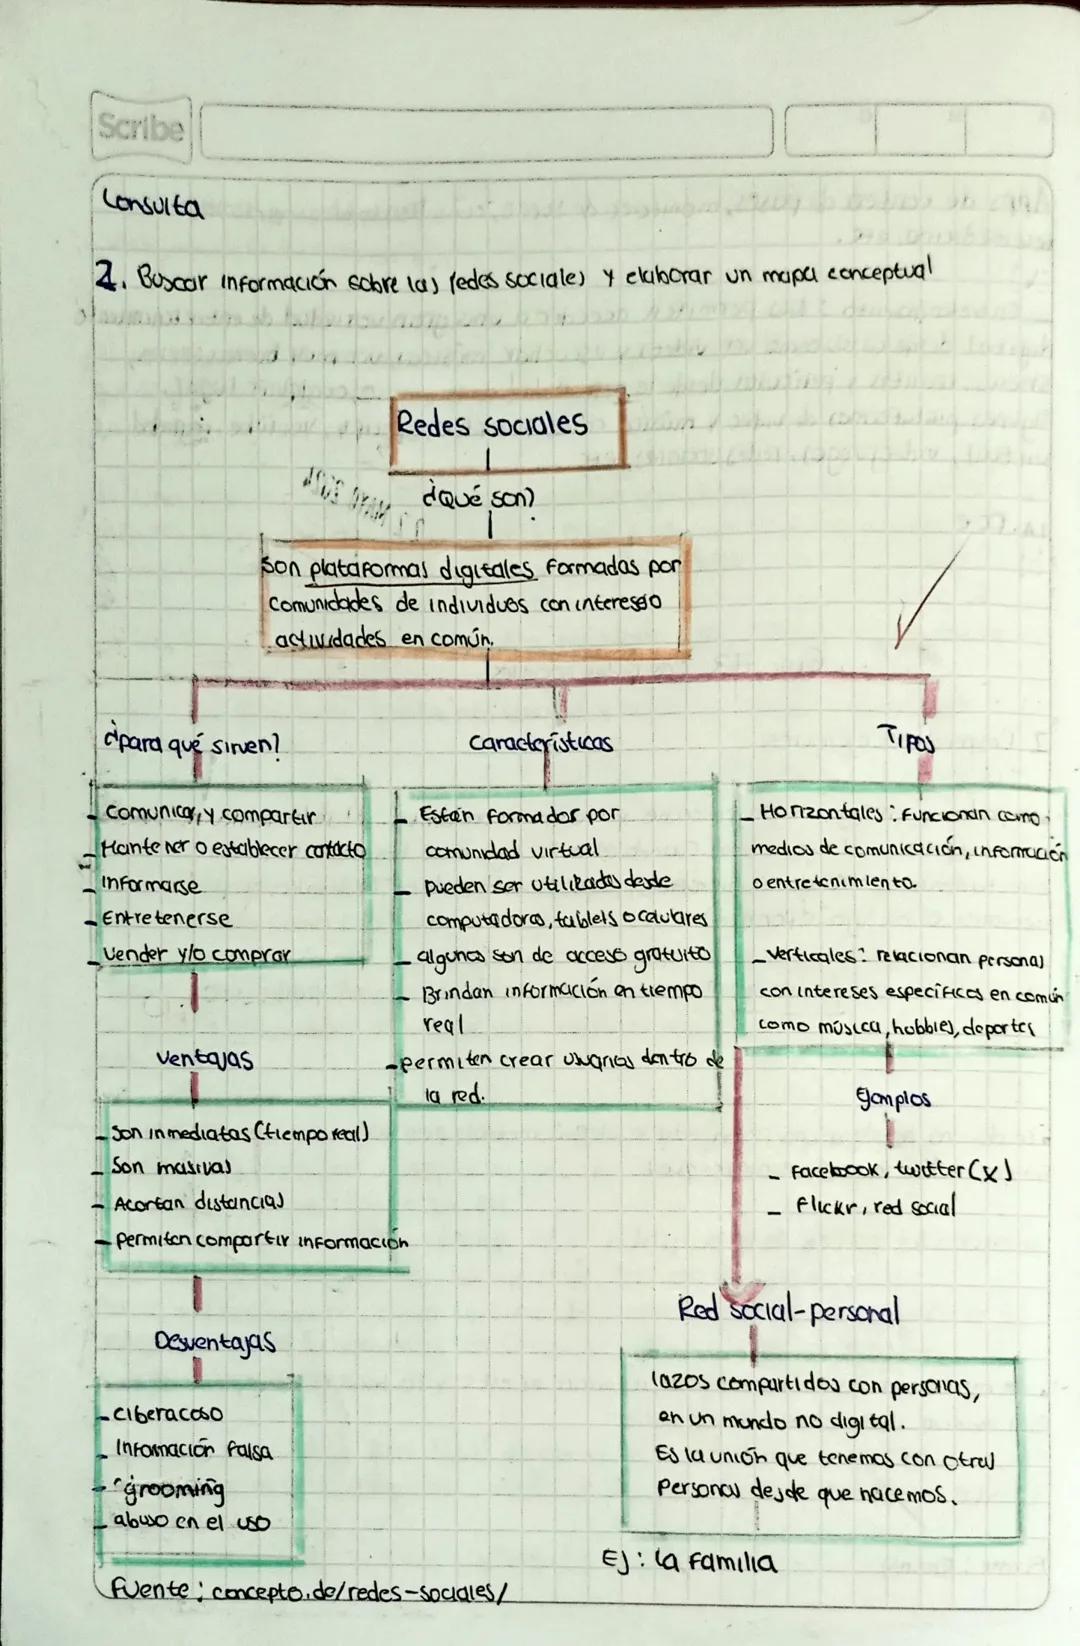 Scribe
Consulta
2. Buscar información sobre las redes sociales y elaborar un mapa conceptual
Redes sociales
¿Qué son?
Son plataformas digitales formadas por
comunidades de individuos con intereses o
actividades en común.
¿para qué sirven?
Comunicar, y compartir
Mantener o establecer contacto
Informarse
Entretenerse
Vender y/o comprar
Ventajas
Son inmediatas (tiempo real)
Son masivas
Acortan distancias
permiten compartir información
Desventajas
ciberacoso
Información falsa
"grooming
abuso en el uso
Fuente: concepto.de/redes-sociales/
Características
Están formador por
comunidad virtual
pueden ser utilizadas desde
computadoras, tablets o celulares
algunas son de acceso gratuito
Brindan información en tiempo
real
permiten crear usuarios dentro de
la red.
Tipos
Horizontales: Funcionan como
medios de comunicación, información
o entretenimiento.
Verticales: relacionan personas
con intereses específicos en común
como música, hobbies, deportes
Ejemplos
Facebook, twitter (x)
Flickr, red social
Red social-personal
lazos compartidos con personas,
en un mundo no digital.
Es la unión que tenemos con otras
Personas desde que nacemos.
Ej: la familia